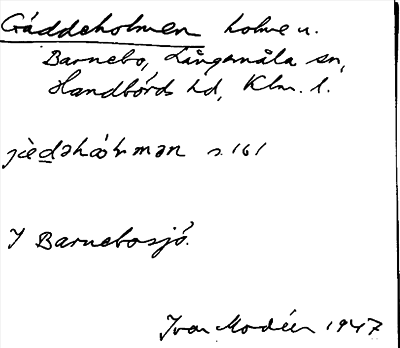 Gäddeholmen holme u.
Barnebo, Långemåla sn,
Handbörds hd, Klm. l.
s. 161
I Barnebosjö.
Ivar Modéer 1947